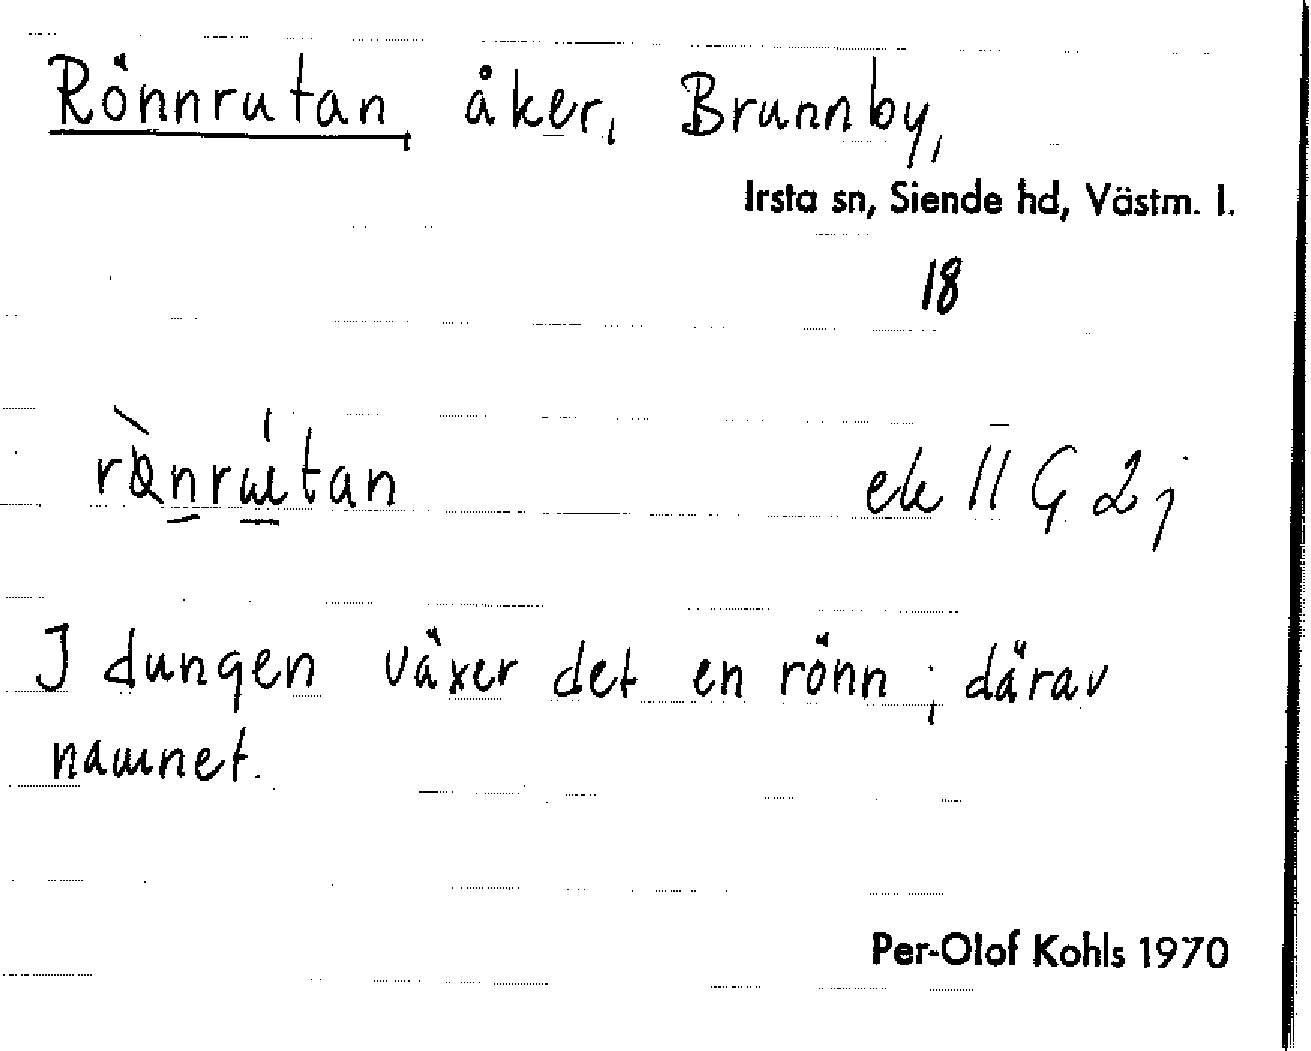 Rönnrutan, åker, Brunnby,
Irsta sn, Siende hd, Västm. l.
18
ek 11 G 2 j
I dungen växer det en rönn; därav
namnet.
Per-Olof Kohls 1970